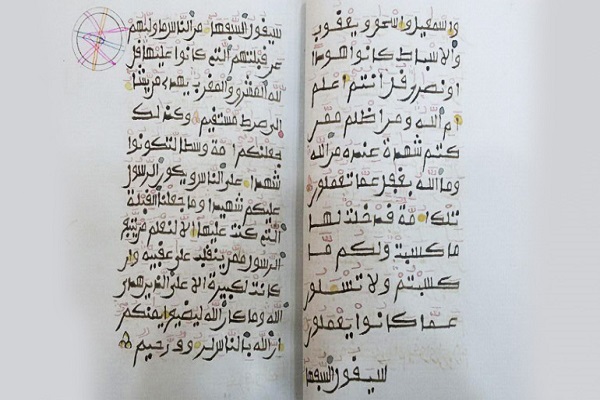 واسمعيل واسحق ويعقوب
والاسباط كانوا هودا
او نصرى قل انتم اعلم
ام الله ومن اظلم ممن
كتم شهدة عنده من الله
وما الله بغفل عما تعملون
تلك امة قد خلت لها
ما كسبت ولكم ما
كسبتم ولا تسلون
عما كانوا يعملون
سيقول السفها
سيقول السفها من الناس ما وليهم
عن قبلتهم التي كانوا عليها قل
لله المشرق والمغرب يهدي من يشا
الى صرط مستقيم وكذلك
جعلنكم امة وسطا لتكونوا
شهدا على الناس ويكون الرسول
عليكم شهيدا وما جعلنا القبلة
التي كنت عليها الا لنعلم من يتبع
الرسول ممن ينقلب على عقبيه وان
كانت لكبيرة الا على الذين هدى
الله وما كان الله ليضيع ايمنكم
ان الله بالناس لروف رحيم